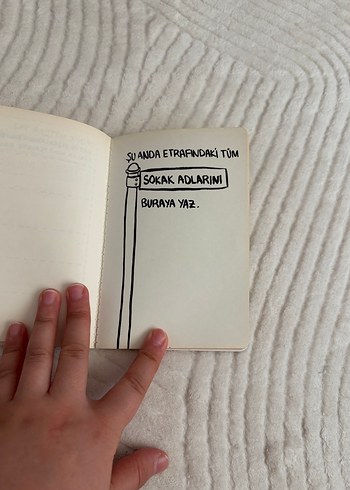 ŞU ANDA ETRAFINDAKİ TÜM
SOKAK ADLARINI
BURAYA YAZ.